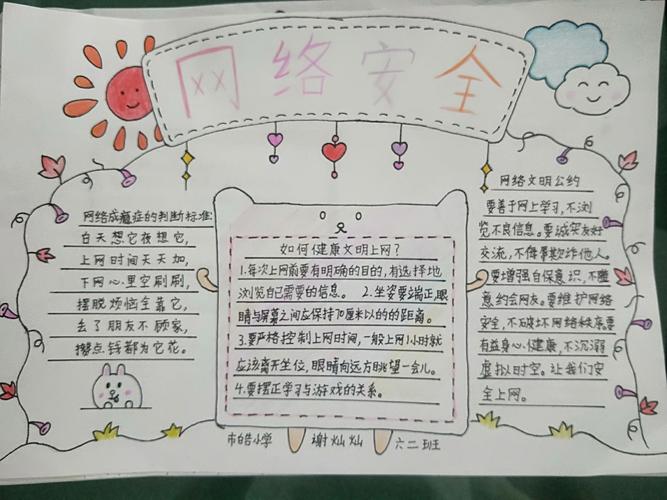 网络安全
网络成瘾症的判断标准:
白天想它夜想它,
上网时间天天加,
下网心里空刷刷,
摆脱烦恼全靠它,
丢了朋友不顾家,
攒点钱都为它花。
如何健康文明上网?
1.每次上网前要有明确的目的,有选择地
浏览自己需要的信息。 2.坐姿要端正,眼
睛与屏幕之间应保持70厘米以的的距离。
3.要严格控制上网时间,一般上网1小时就
应该离开坐位,眼睛向远方眺望一会儿。
4.要摆正学习与游戏的关系。
网络文明公约
要善于网上学习,不浏
览不良信息。要诚实友好
交流,不侮辱欺诈他人。
要增强自保意识,不随
意约会网友。要维护网络
安全,不破坏网络秩序要
有益身心健康,不沉溺
虚拟时空。让我们安
全上网。
市皓小学 谢灿灿 六二班